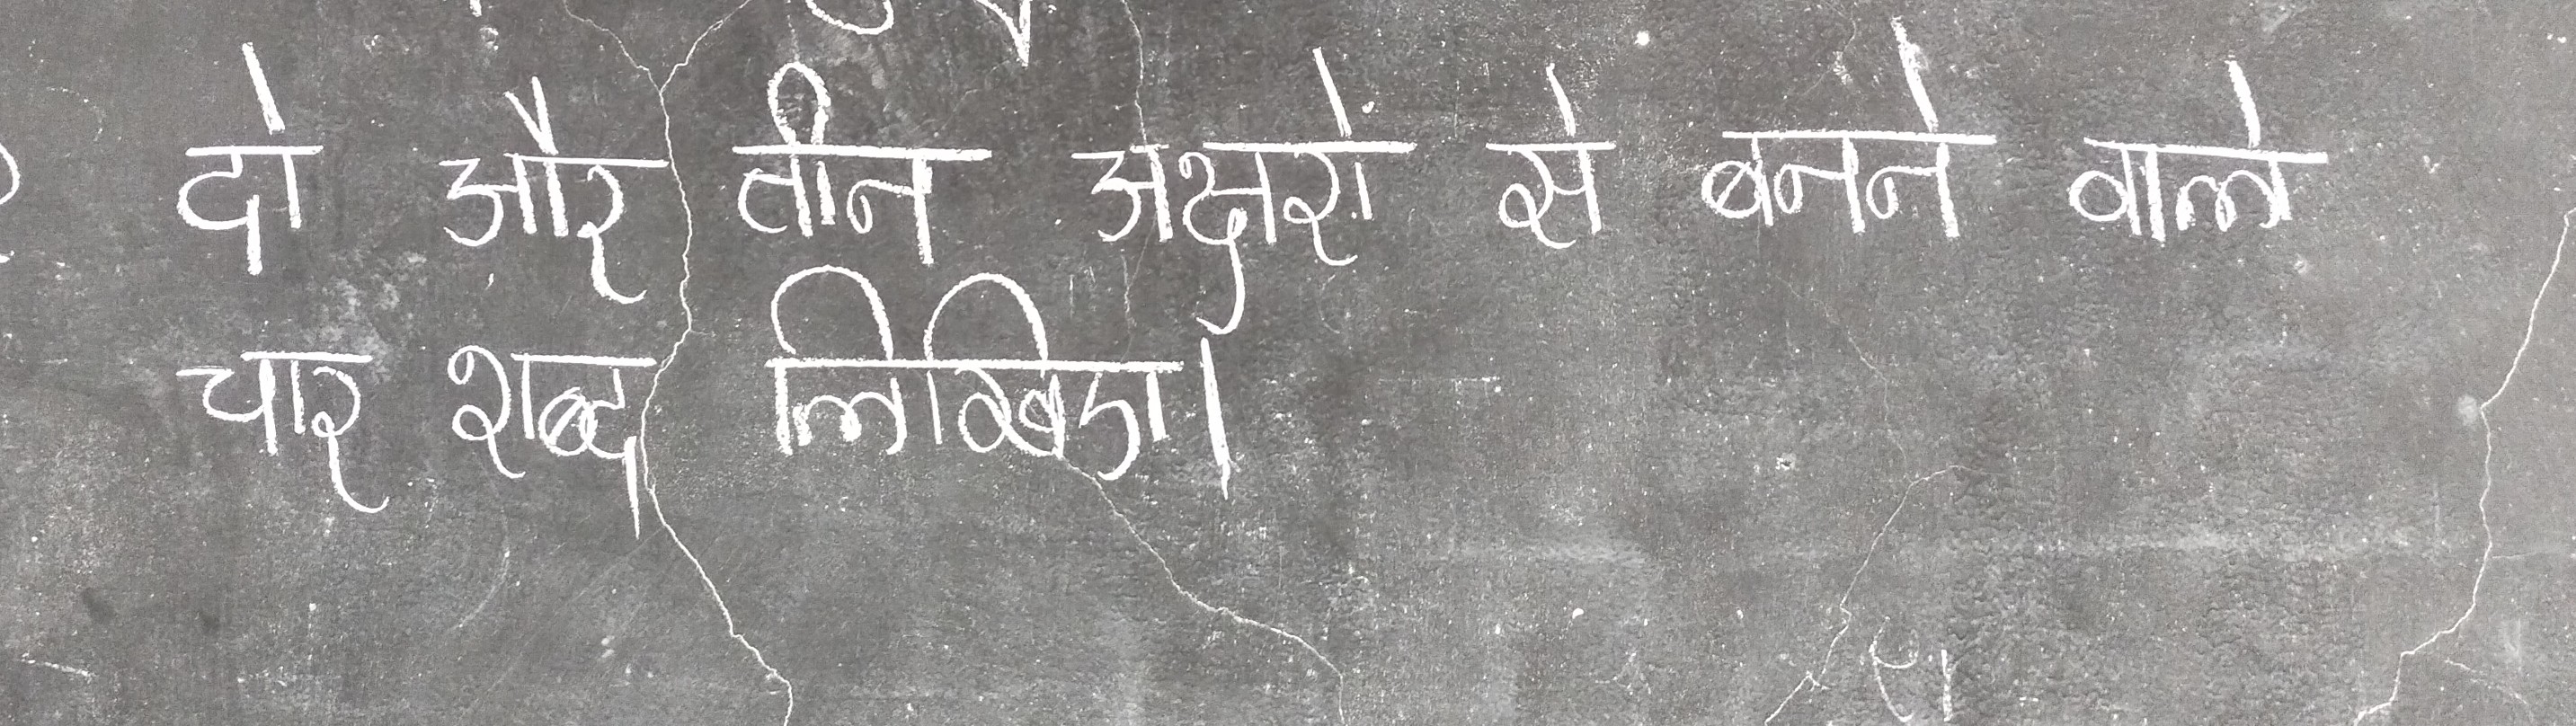 दो और तीन अक्षरों से बनने वाले
चार शब्द लिखिए।